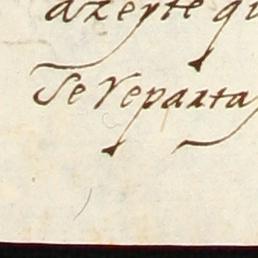 azeyte qu
Se reparta